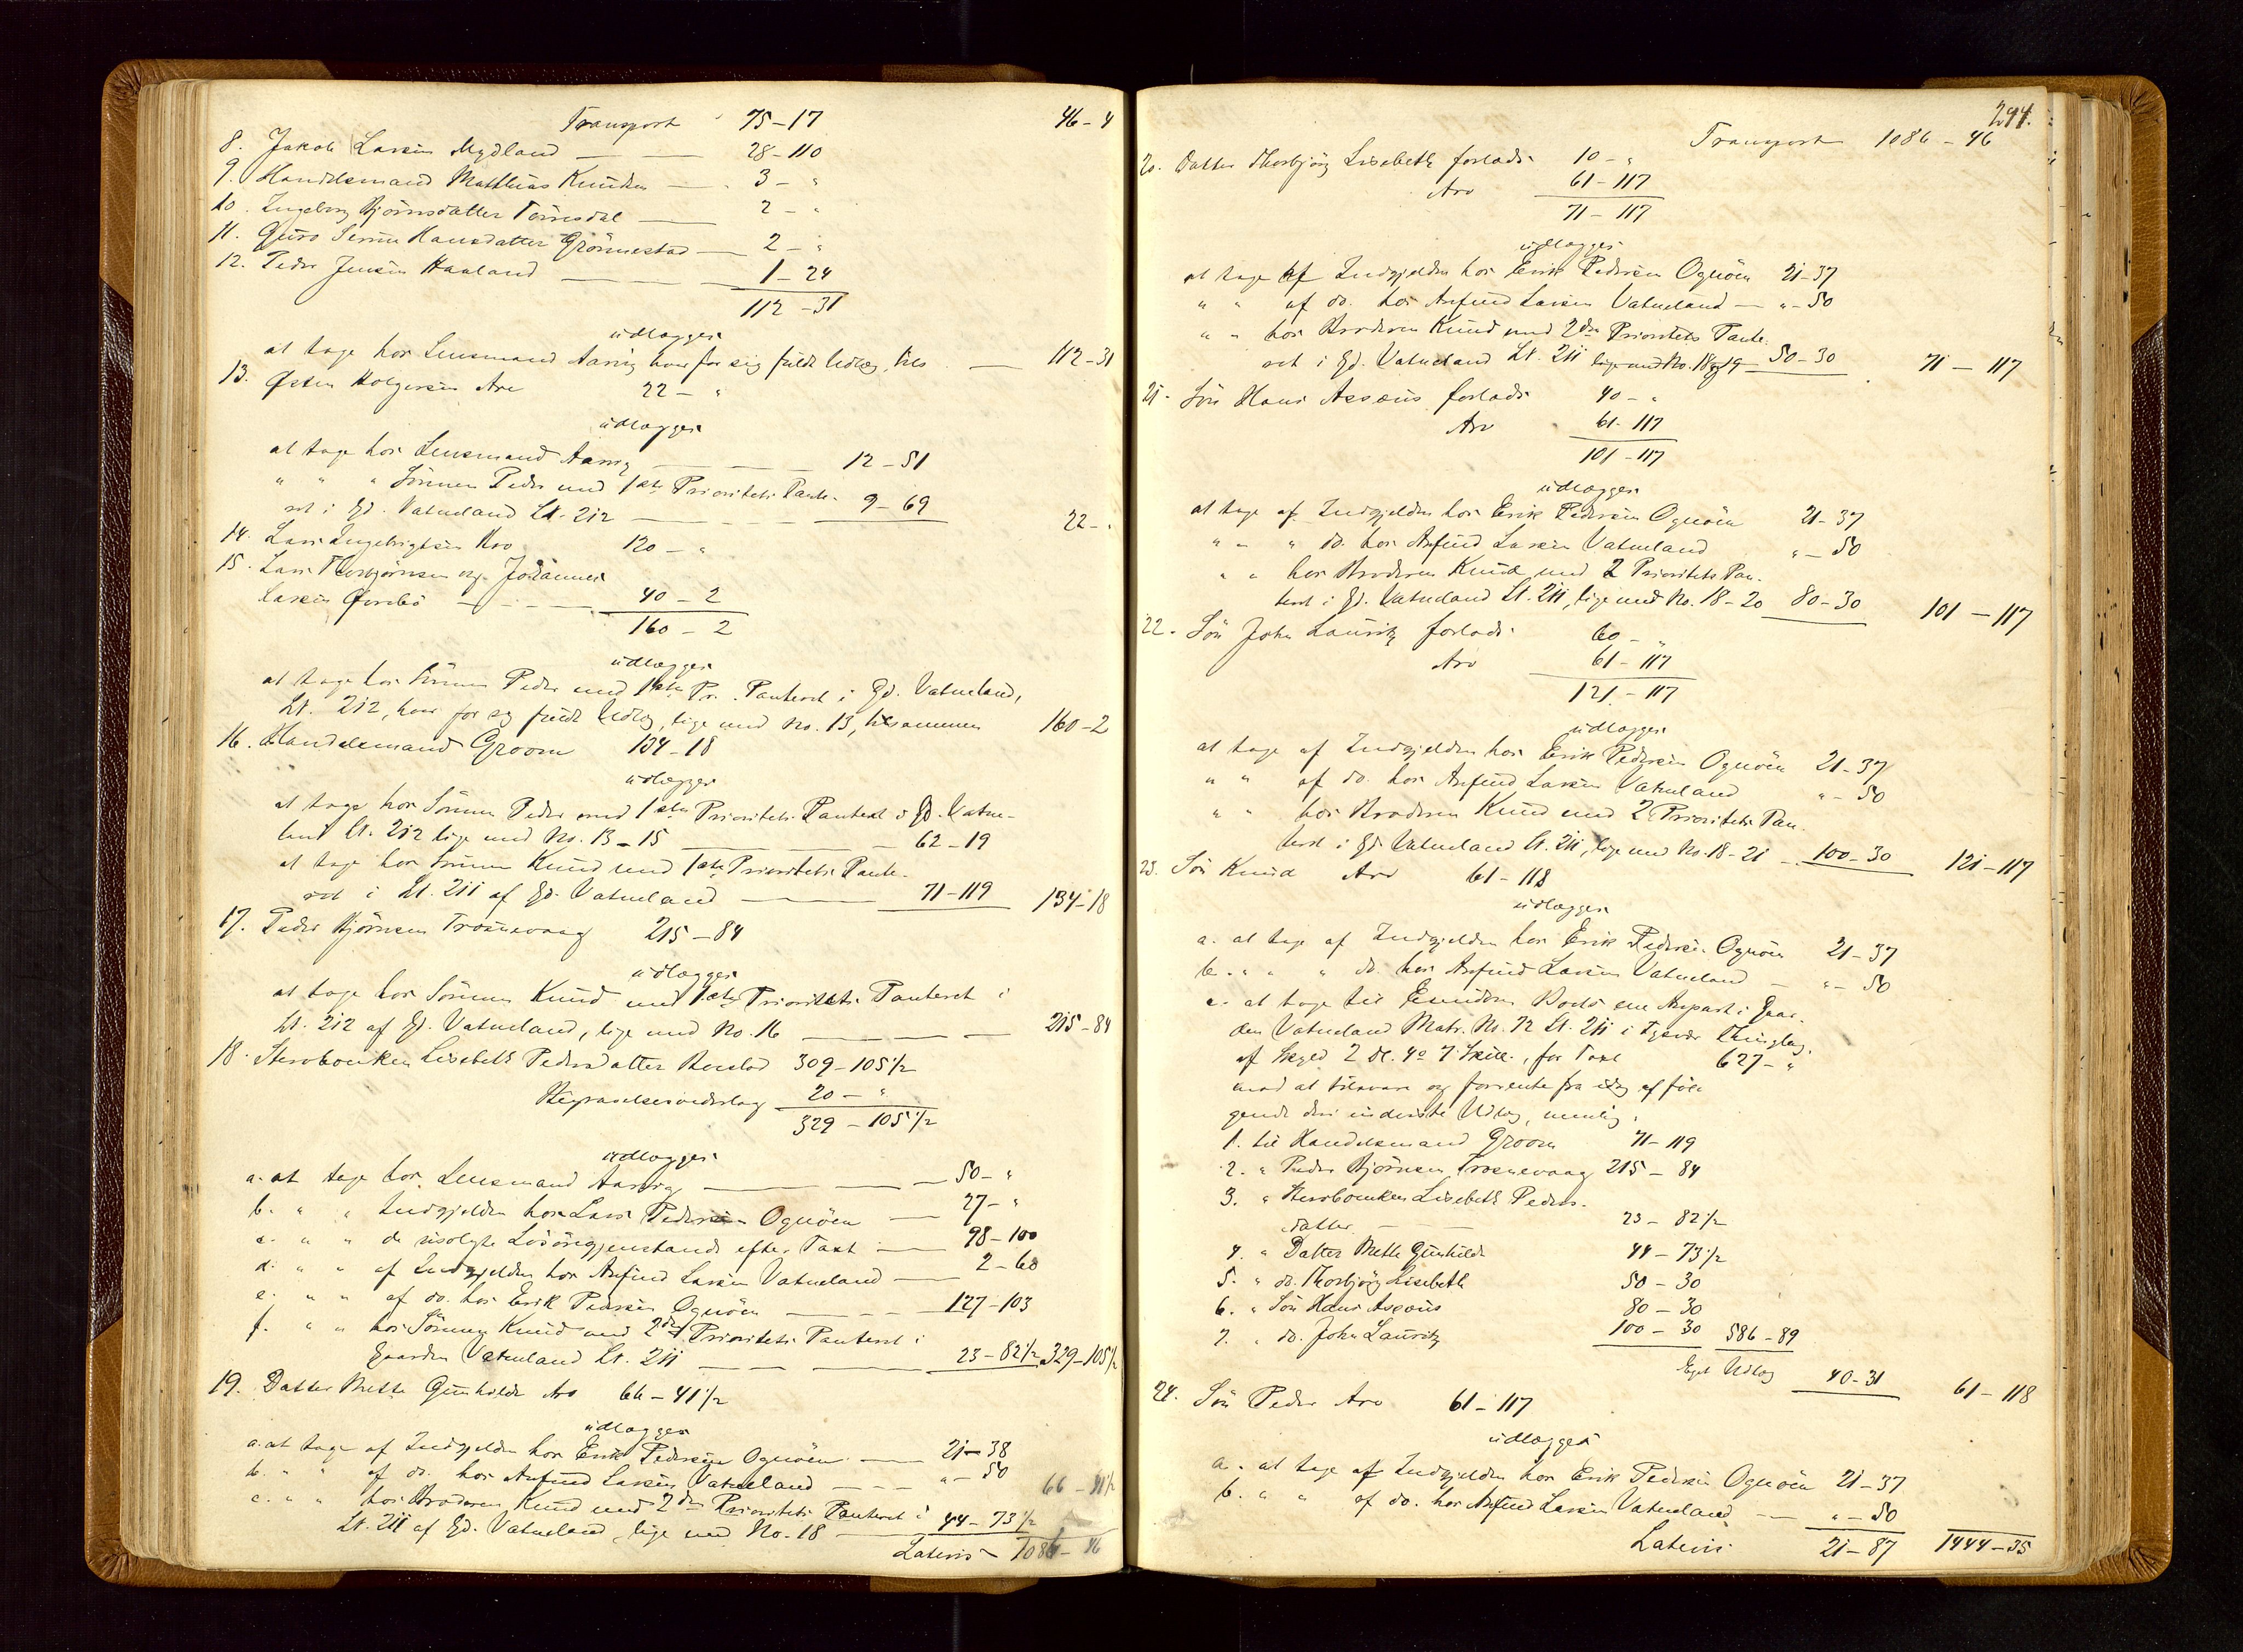 Transport 75-17 46-4
8. Jakob Larsen Mydland — — 28-110
9. Handelsmand Mathias Knudsen — 3-"
10. Ingeborg Bjørnsdatter Tørresdal — 2-"
11. Guro Serine Hansdatter Grønnestad — 2-"
12. Peder Jensen Haaland — — 1-24
112-31
udlægges
at tage hos Lensmand Aarrig hver for sig fuldt Udlæg, tils. — 112-31
13. Østen Holgersen Are 22-"
udlægges
at tage hos Lensmand Aarrig — — — 12-51
" " " Sønnen Peder med 1ste Prioritets Pante-
ret i Gd. Vatneland Lt. 212 — — 9-69 22-"
14. Lars Ingebrigtsen Hoo 120-"
15. Lars Thorbjørnsen og Johannes
Larsen Øvrebø — — — 40-2
160-2
udlægges
at tage hos Sønnen Peder med 1ste Pr. Panteret i Gd. Vatneland,
Lt. 212, hver for sig fuldt Udlæg, lige med No. 13, tilsammen 160-2
16. Handelsmand Groom 134-18
udlægges
at tage hos Sønnen Peder med 1ste Prioritets Panteret i Gd. Vatne-
land Lt. 212 lige med No. 13-15 — — — 62-19
at tage hos Sønnen Knud med 1ste Prioritets Pante-
ret i Lt. 211 af Gd. Vatneland — — 71-119 134-18
17. Peder Bjørnsen Trosnevaag 215-84
udlægges
at tage hos Sønnen Knud med 1ste Prioritets Panteret i
Lt. 212 af Gd. Vatneland, lige med No. 16 — — — 215-84
18. Stervboenken Lisebeth Pedersdatter Boeslod 309-105½
Begravelsesvederlag 20-"
329-105½
udlægges
a. at tage hos Lensmand Aarrig — — — 50-"
b. " " Indgjelden hos Lars Pedersen Ognøen — 27-"
c. " " de usolgte Løsøregjenstande efter Taxt — 98-100
d. " " af Indgjelden hos Anfind Larsen Vatneland — 2-60
e. " " af do. hos Erik Pedersen Ognøen — — 127-103
f. " " hos Sønnen Knud med 2den Prioritets Panteret i
Gaarden Vatneland Lt. 211 — — — 23-82½ 329-105½
19. Datter Mette Gunhilde Arv 66-41½
udlægges
a. at tage af Indgjelden hos Erik Pedersen Ognøen — 21-38
b. " " af do. hos Anfind Larsen Vatneland — — "-50
c. " " hos Broderen Knud med 2den Prioritets Panteret i 66-41½
Lt. 211 af Gd. Vatneland, lige med No. 18 — 44-73½
Lateris 1086-46
294.
Transport 1086-46
20. Datter Thorbjørg Lisebeth forlods 10-"
Arv 61-117
71-117
udlægges
at tage af Indgjelden hos Erik Pedersen Ognøen 21-37
" " af do. hos Anfind Larsen Vatneland — "-50
" " hos Broderen Knud med 2den Prioritets Pante-
ret i Gd. Vatneland Lt. 211 lige med No. 18 & 19 50-30 71-117
21. Søn Hans Asseus forlods 40-"
Arv 61-117
101-117
udlægges
at tage af Indgjelden hos Erik Pedersen Ognøen 21-37
" " " do. hos Anfind Larsen Vatneland "-50
" " hos Broderen Knud med 2 Prioritets Pan-
teret i Gd. Vatneland Lt. 211, lige med No. 18-20 80-30 101-117
22. Søn John Lauritz forlods 60-"
Arv 61-117
121-117
udlægges
at tage af Indgjelden hos Erik Pedersen Ognøen 21-37
" " af do. hos Anfind Larsen Vatneland "-50
" " hos Broderen Knud med 2 Prioritets Pan-
teret i Gd. Vatneland Lt. 211, lige med No. 18-21 — 100-30 121-117
23. Søn Knud Arv 61-118
udlægges
a. at tage af Indgjelden hos Erik Pedersen Ognøen 21-37
b. " " " do. hos Anfind Larsen Vatneland — "-50
c. at tage til Eiendom Boets ene Anpart i Gaar-
den Vatneland Matr. No. 72 Lt. 211 i Tysvær Thinglag,
af Skyld 2 dl. 4 o 7 Skill., for Taxt 627-"
mod at tilsvare og forrente fra idag af føl-
gende deri anviste Udlæg, nemlig:
1. til Handelsmand Groom 71-119
2. " Peder Bjørnsen Trosnevaag 215-84
3. " Stervboenken Lisebeth Peders-
datter — — 23-82½
4. " Datter Mette Gunhilde 44-73½
5. " do. Thorbjørg Lisebeth 50-30
6. " Søn Hans Asseus 80-30
7. " do. John Lauritz 100-30 586-89
Eget Udlæg 40-31 61-118
24. Søn Peder Arv 61-117
udlægges
a. at tage af Indgjelden hos Erik Pedersen Ognøen 21-37
b. " " af do. hos Anfind Larsen Vatneland — "-50
Lateris 21-87 1444-35